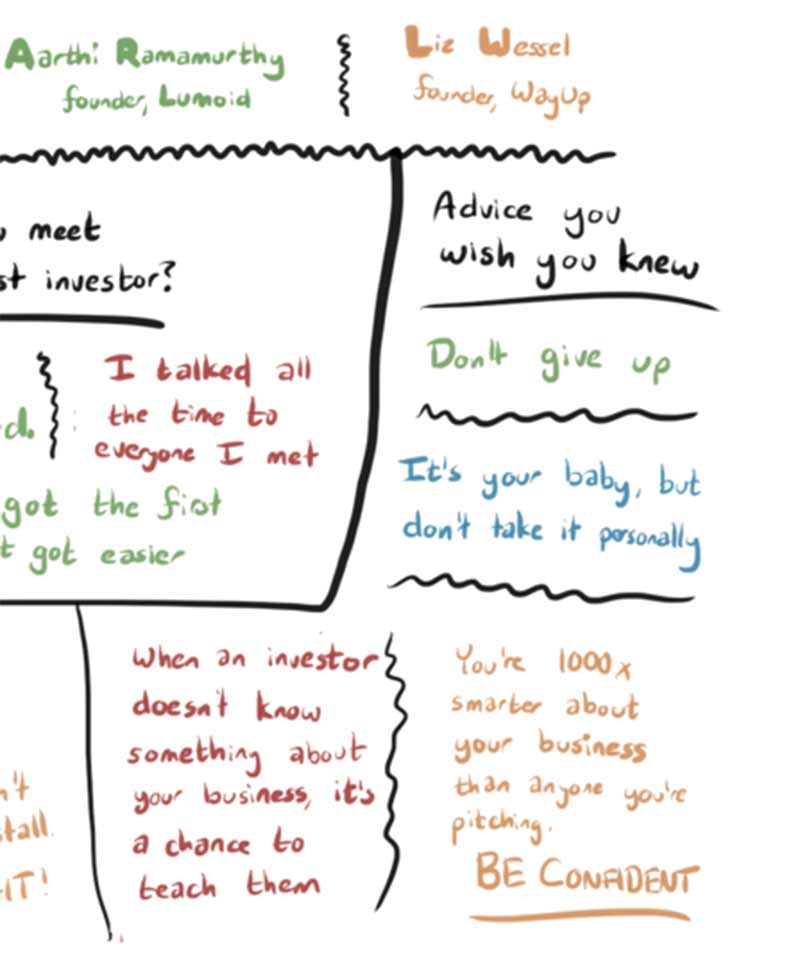 Aarthi Ramamurthy
founder, Lumoid
Liz Wessel
founder, WayUp
meet
investor?
I talked all
the time to
everyone I met
got the first
got easier
Advice you
wish you knew
Don't give up
It's your baby, but
don't take it personally
When an investor
doesn't know
something about
your business, it's
a chance to
teach them
You're 1000x
smarter about
your business
than anyone you're
pitching.
BE CONFIDENT